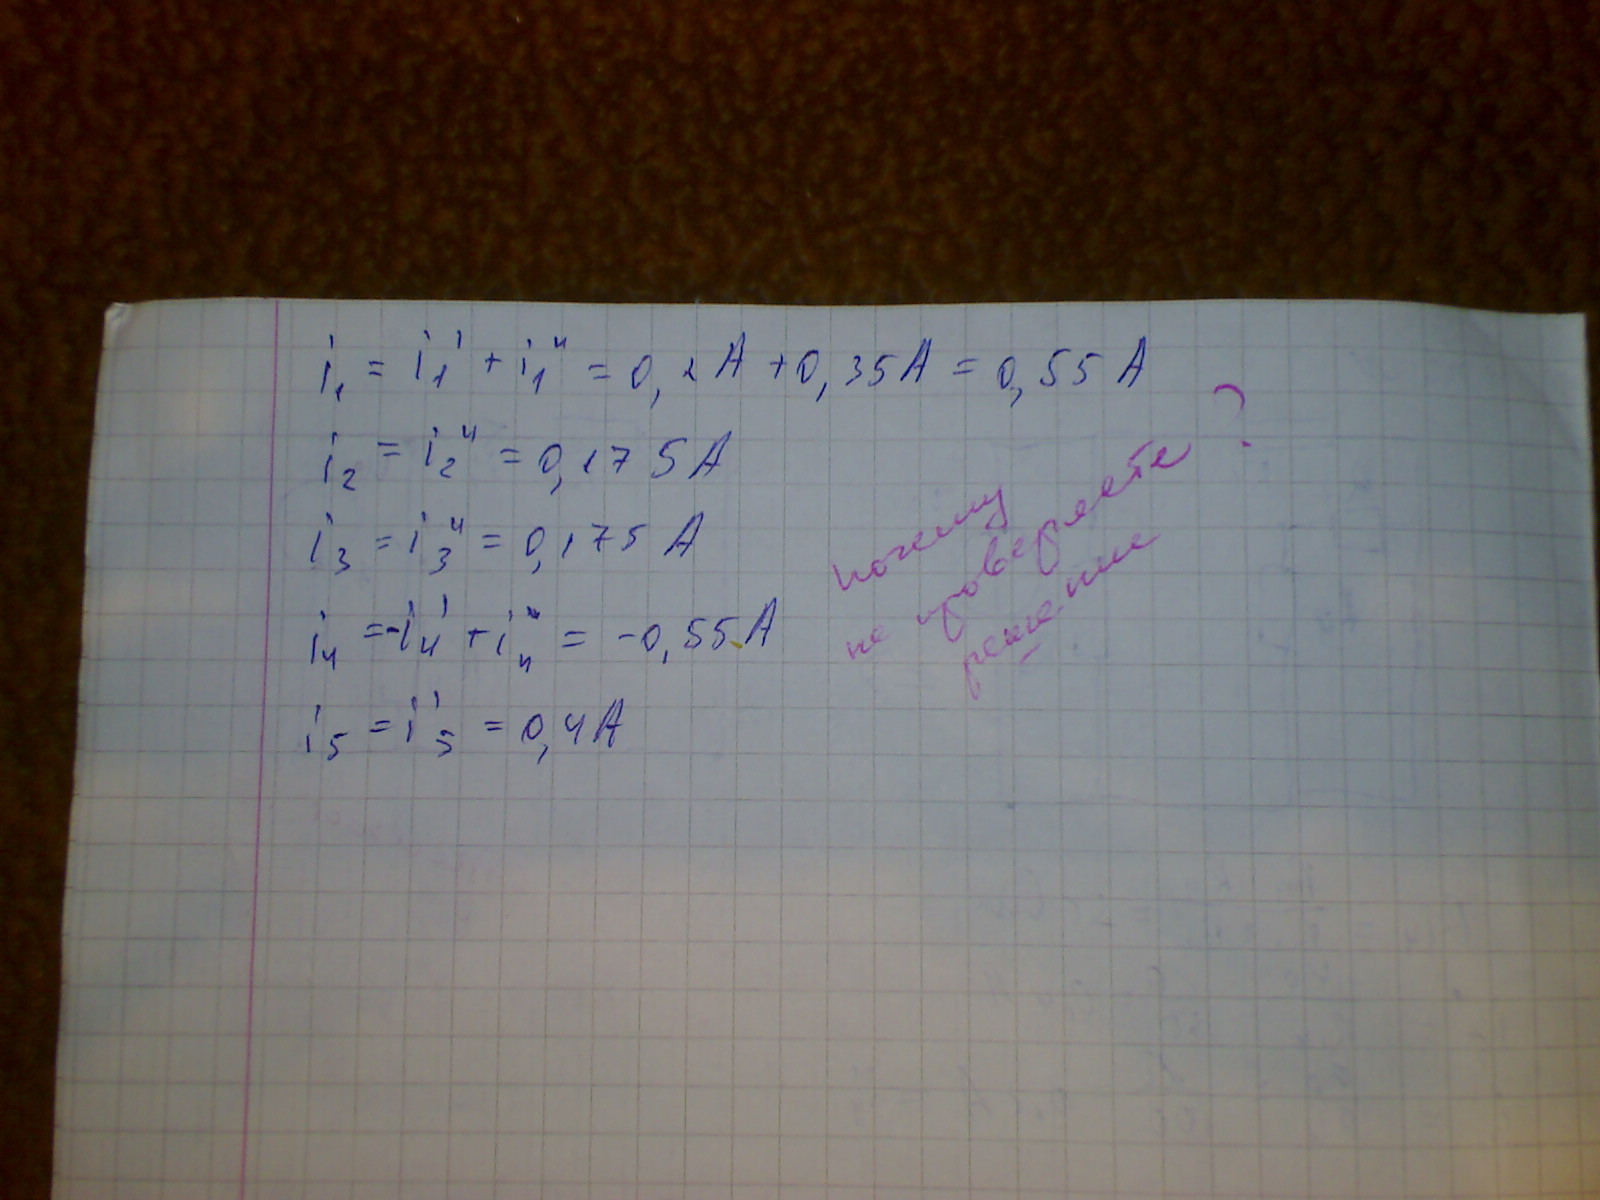 i₁ = i₁' + i₁'' = 0,2A + 0,35A = 0,55A
i₂ = i₂'' = 0,175A
i₃ = i₃'' = 0,175A
i₄ = -i₄' + i₄'' = -0,55A
i₅ = i₅' = 0,4A
почему
не проверяете ?
решение